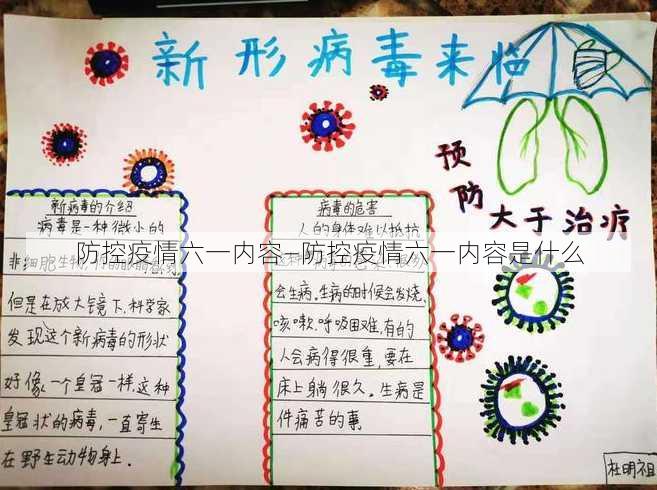 新形病毒来临
预防大于治疗
新病毒的介绍
病毒是一种微小的
防控疫情六一内容-防控疫情六一内容是什么
但是在放大镜下,科学家
发现这个新病毒的形状
好像一个皇冠一样,这种
皇冠状的病毒,一直寄生
在野生动物身上.
病毒的危害
人的身体难以抵抗
会生病。生病的时候会发烧,
咳嗽.呼吸困难,有的
人会病得很重,要在
床上躺很久。生病是
件痛苦的事
杜明祖